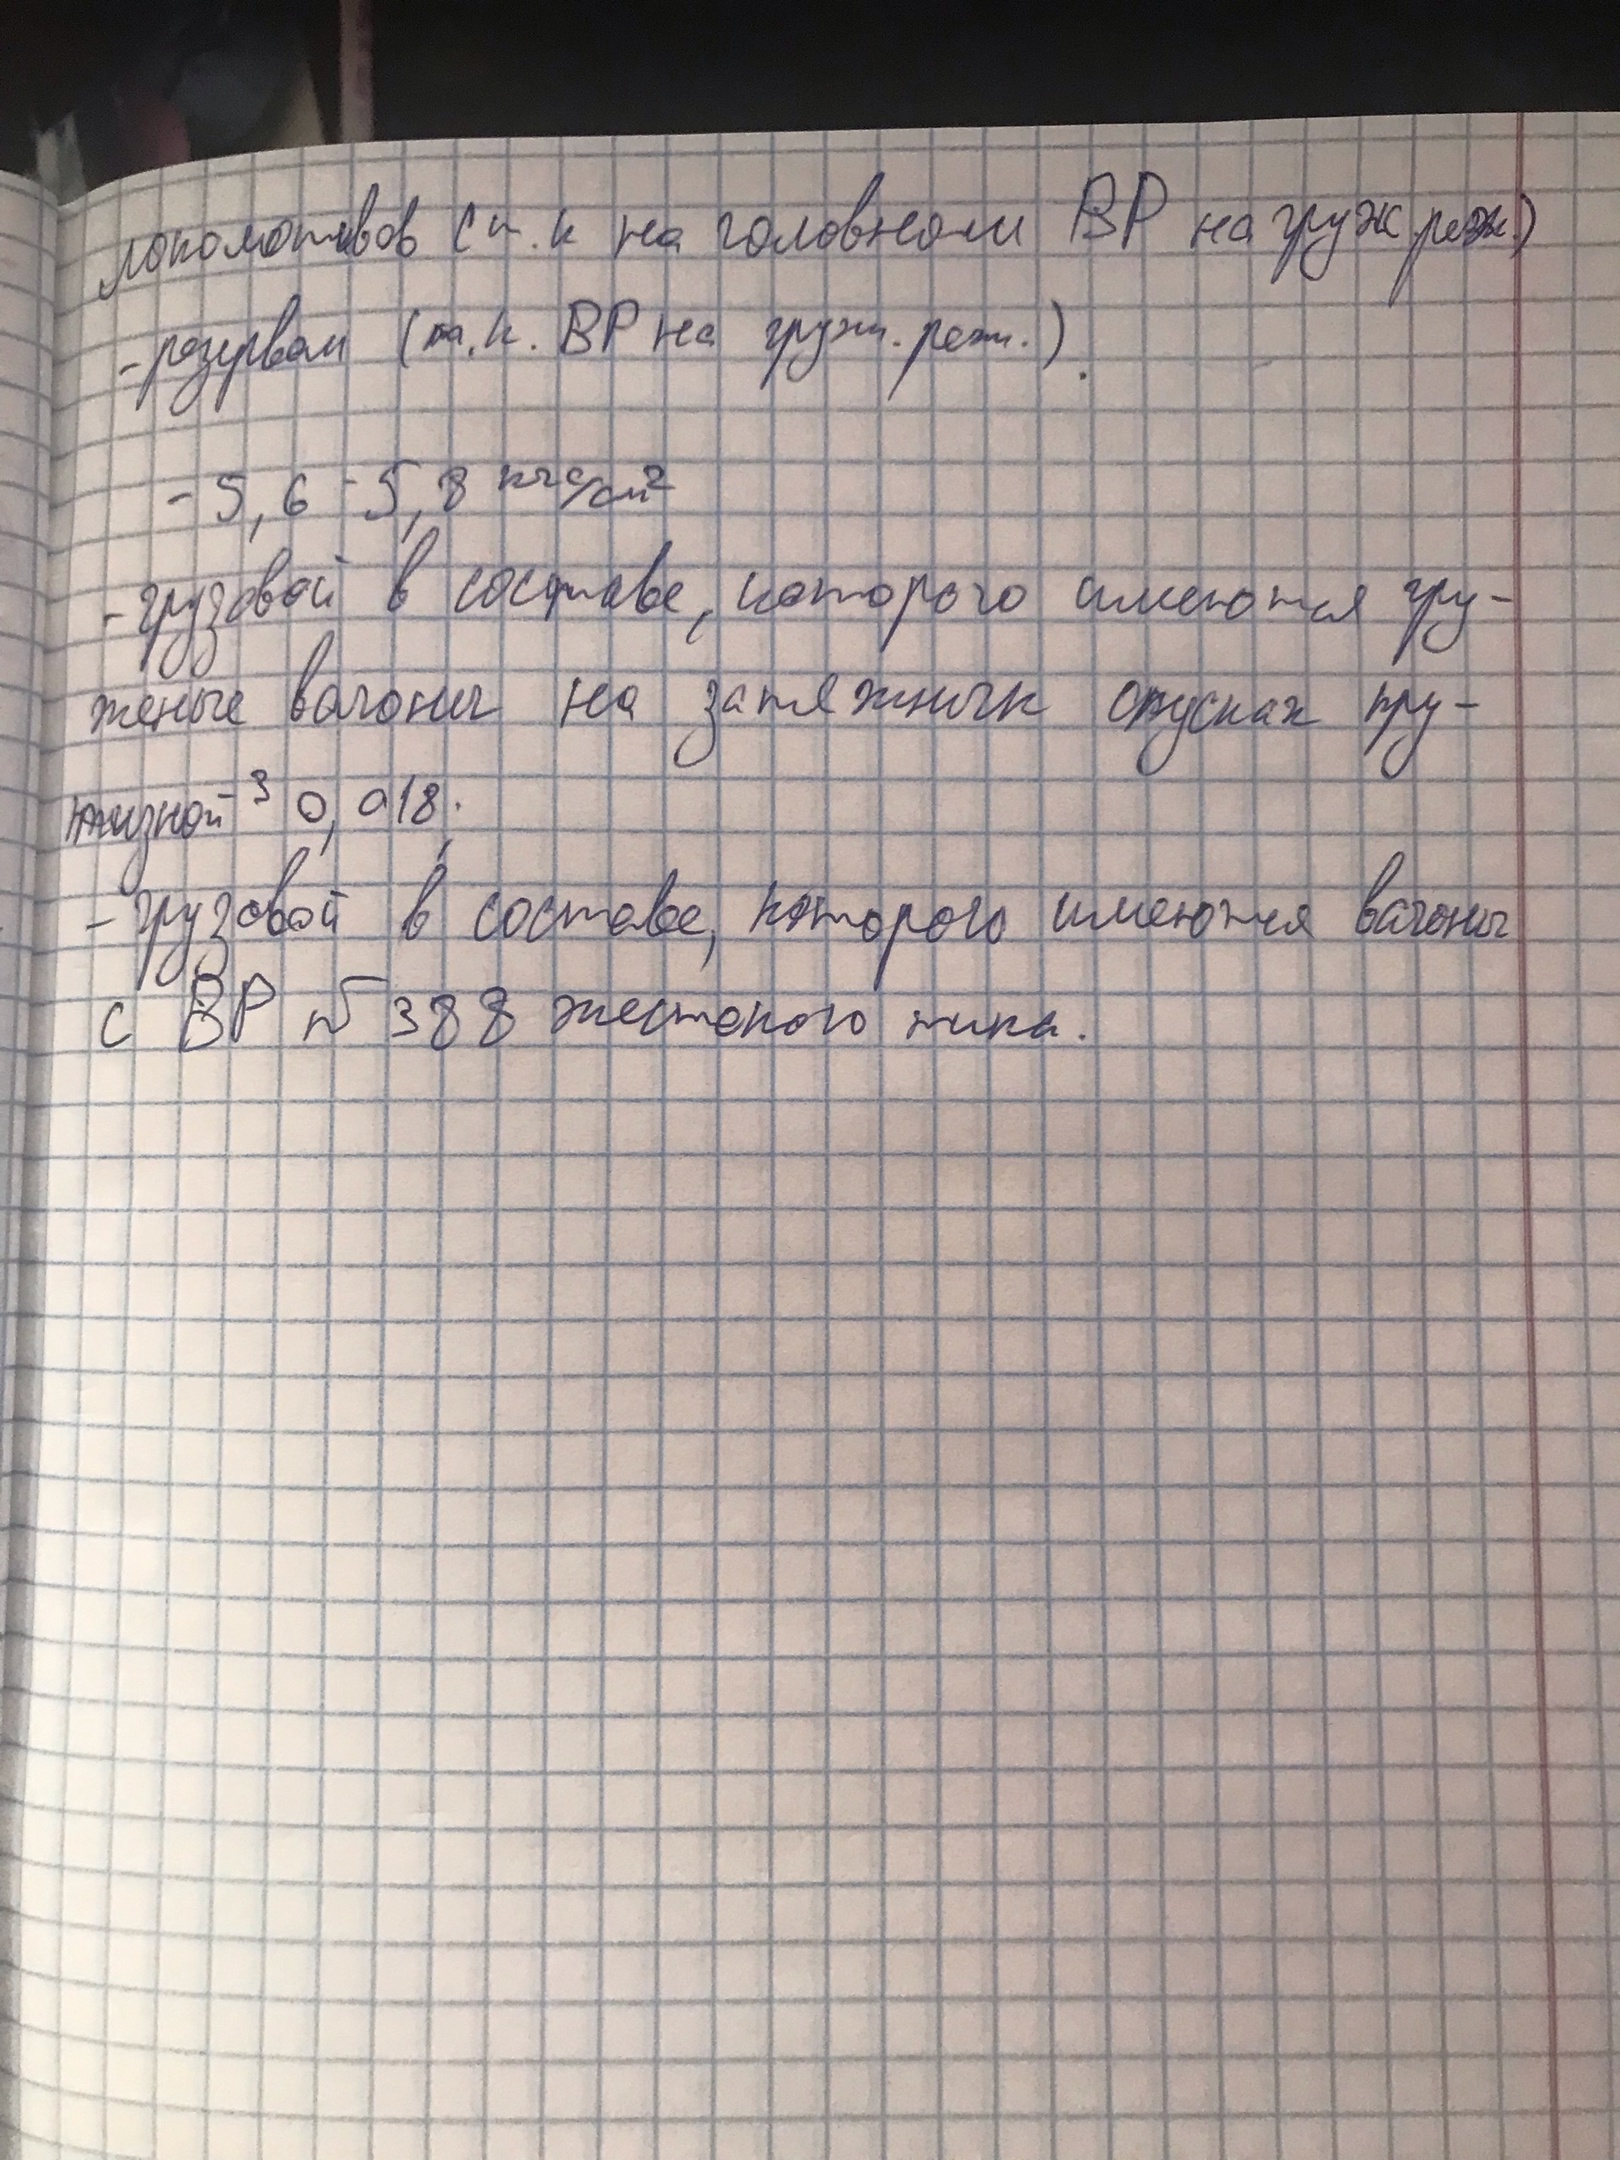 локомотивов ст.к на головном ВР на груж реж.)
- резервом (т.к. ВР на груж. реж.).
- 5,6 - 5,8 кгс/см²
- грузовой в составе, которого имеются гру-
женые вагоны на затяжных спусках кру-
тизной ³ 0,018;
- грузовой в составе, которого имеются вагоны
с ВР № 388 жесткого типа.